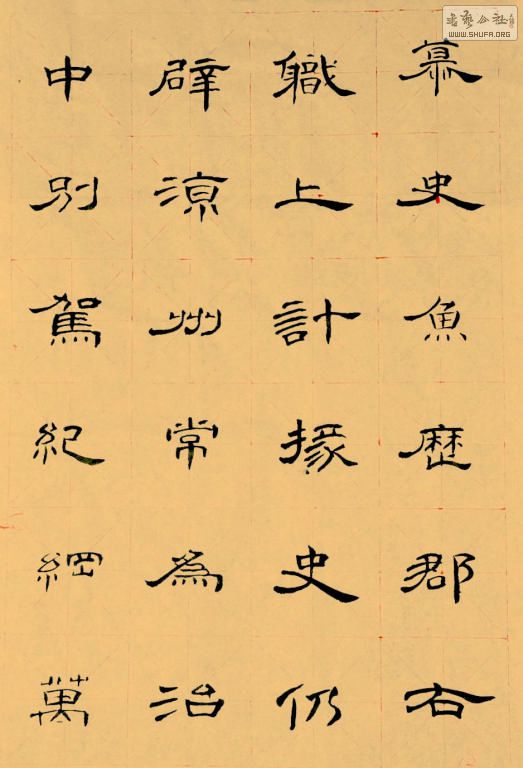 慕史魚歷郡右
軄上計掾史仍
辟涼州常為治
中別駕紀綱萬
書藝公社
WWW.SHUFA.ORG